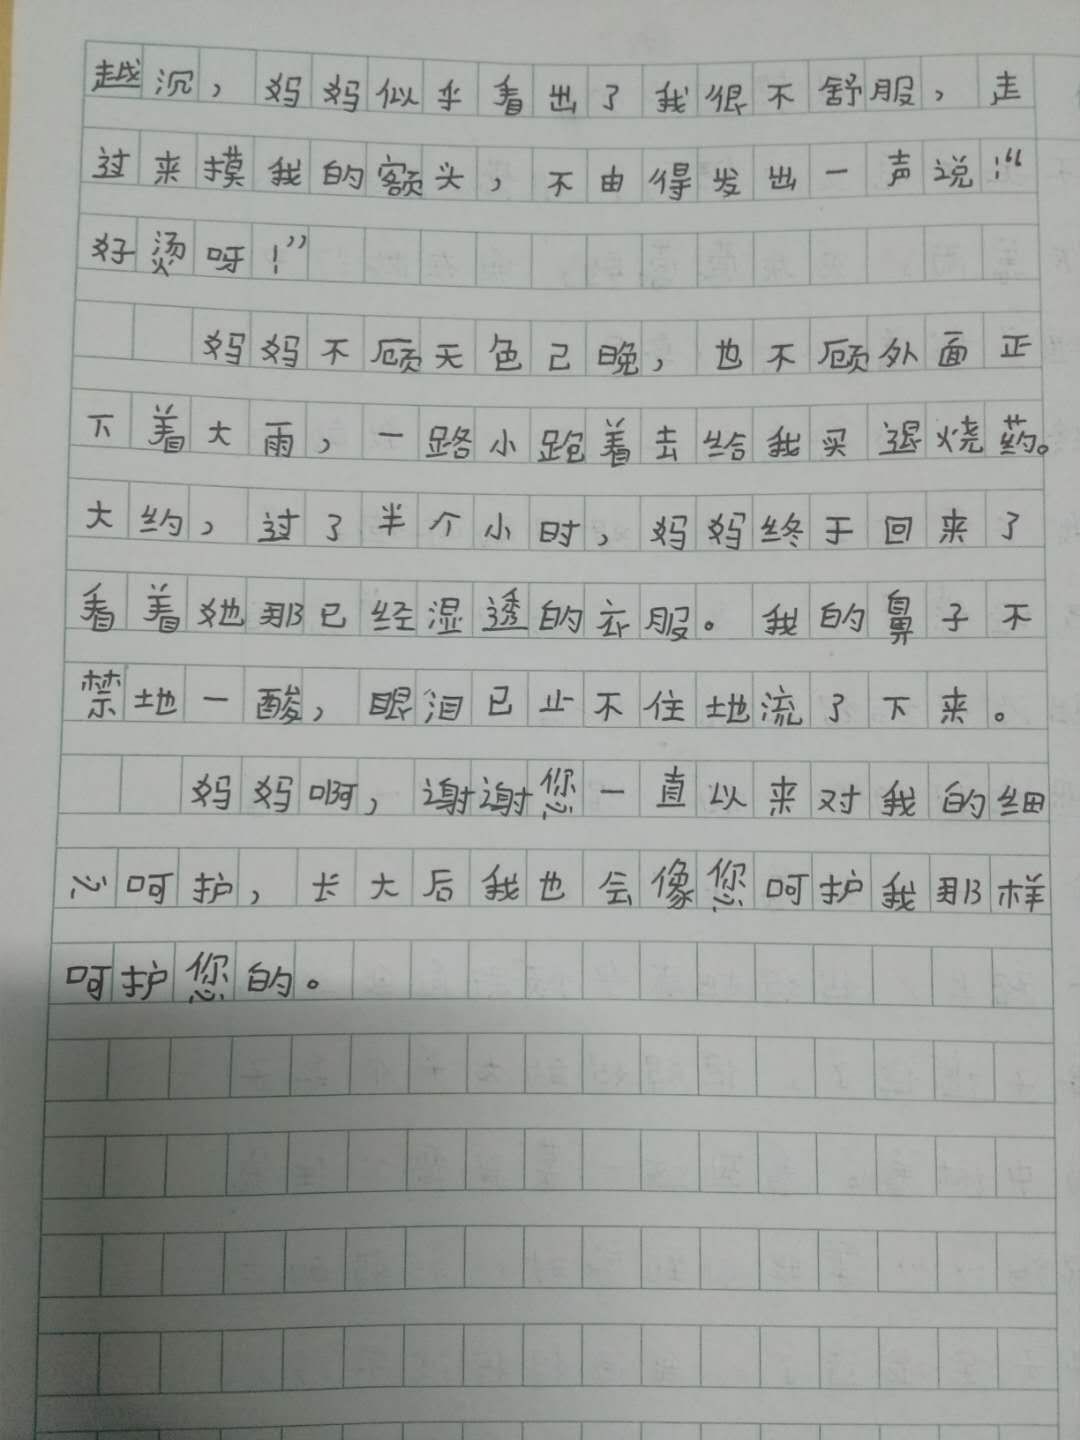 越沉，妈妈似乎看出了我很不舒服，走
过来摸我的额头，不由得发出一声说：“
好烫呀！”
妈妈不顾天色已晚，也不顾外面正
下着大雨，一路小跑着去给我买退烧药。
大约，过了半个小时，妈妈终于回来了
看着她那已经湿透的衣服。我的鼻子不
禁地一酸，眼泪已止不住地流了下来。
妈妈啊，谢谢您一直以来对我的细
心呵护，长大后我也会像您呵护我那样
呵护您的。